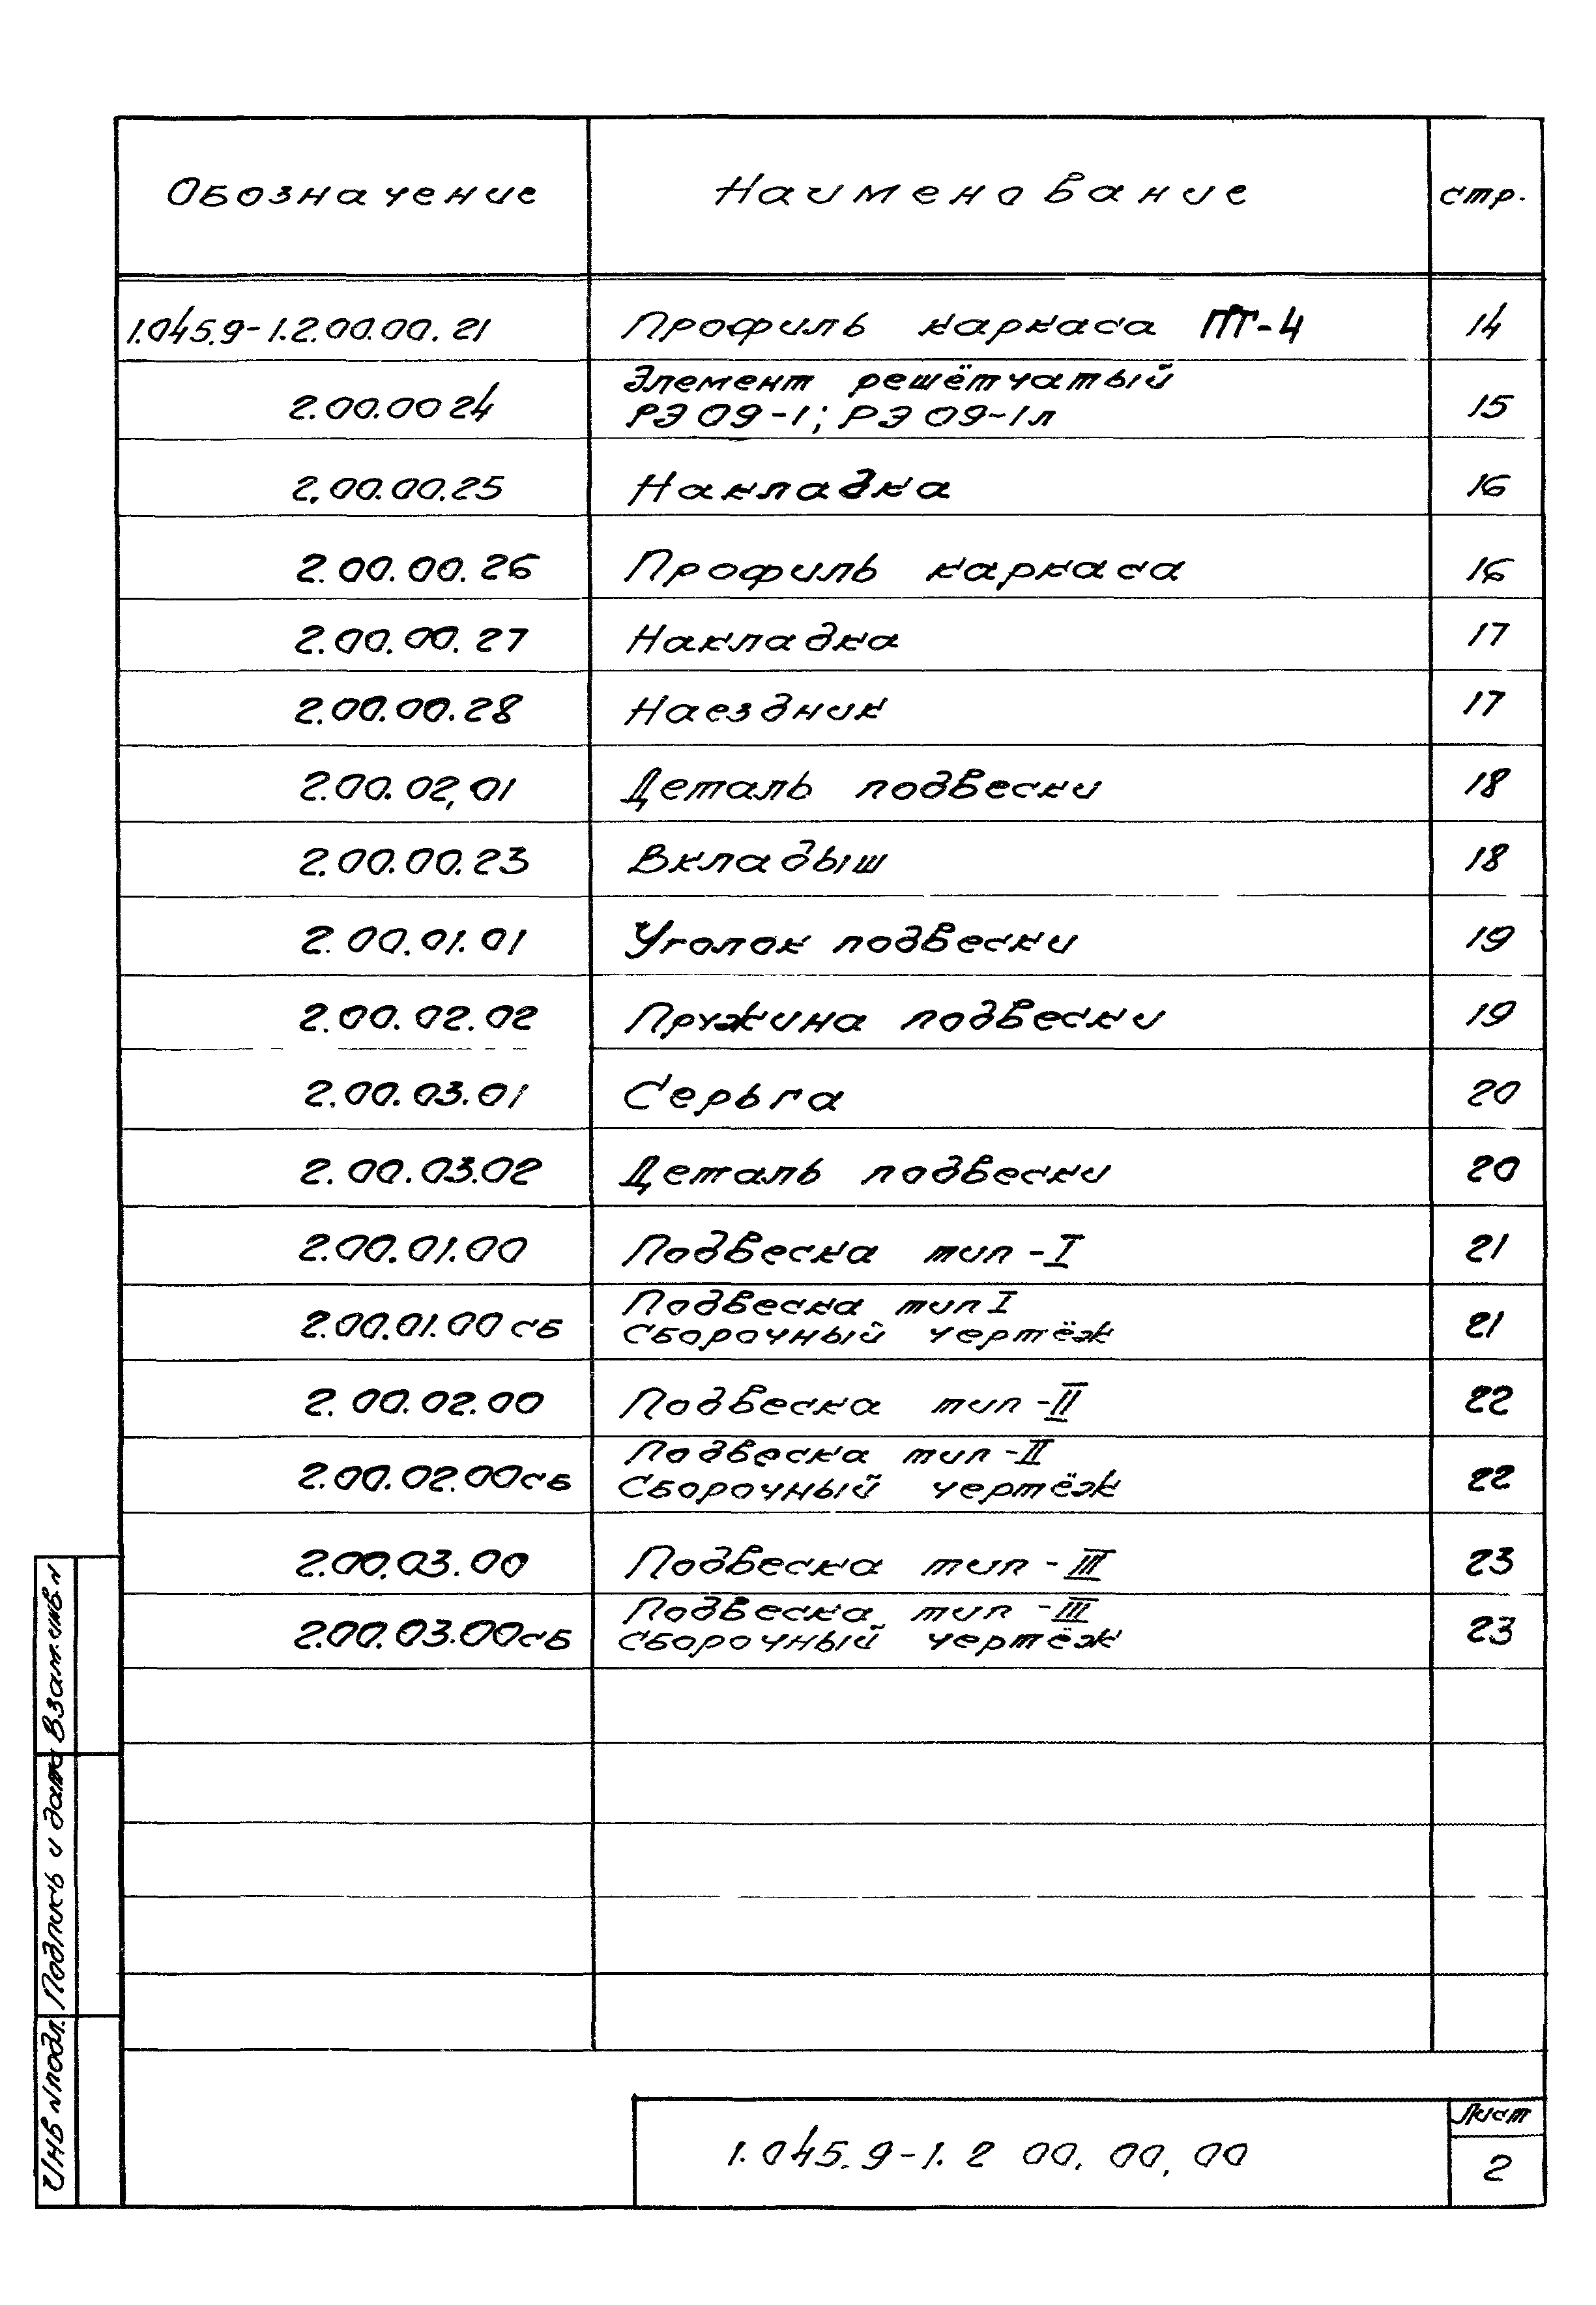 Обозначение Наименование стр.
1.045.9-1.2.00.00.21 Профиль каркаса ПГ-4 14
2.00.00 24 Элемент решётчатый 15
РЭ 09-1; РЭ 09-1л
2.00.00.25 Накладка 16
2.00.00.26 Профиль каркаса 16
2.00.00.27 Накладка 17
2.00.00.28 Наездник 17
2.00.02,01 Деталь подвески 18
2.00.00.23 Вкладыш 18
2.00.01.01 Уголок подвески 19
2.00.02.02 Пружина подвески 19
2.00.03.01 Серьга 20
2.00.03.02 Деталь подвески 20
2.00.01.00 Подвеска тип-I 21
2.00.01.00 сб Подвеска тип I 21
Сборочный чертёж
2.00.02.00 Подвеска тип-II 22
2.00.02.00сб Подвеска тип-II 22
Сборочный чертёж
2.00.03.00 Подвеска тип-III 23
2.00.03.00сб Подвеска тип-III 23
Сборочный чертёж
Взам.инв.N
Подпись и дата
Инв N подл.
1.045.9-1.2 00.00.00
Лист
2